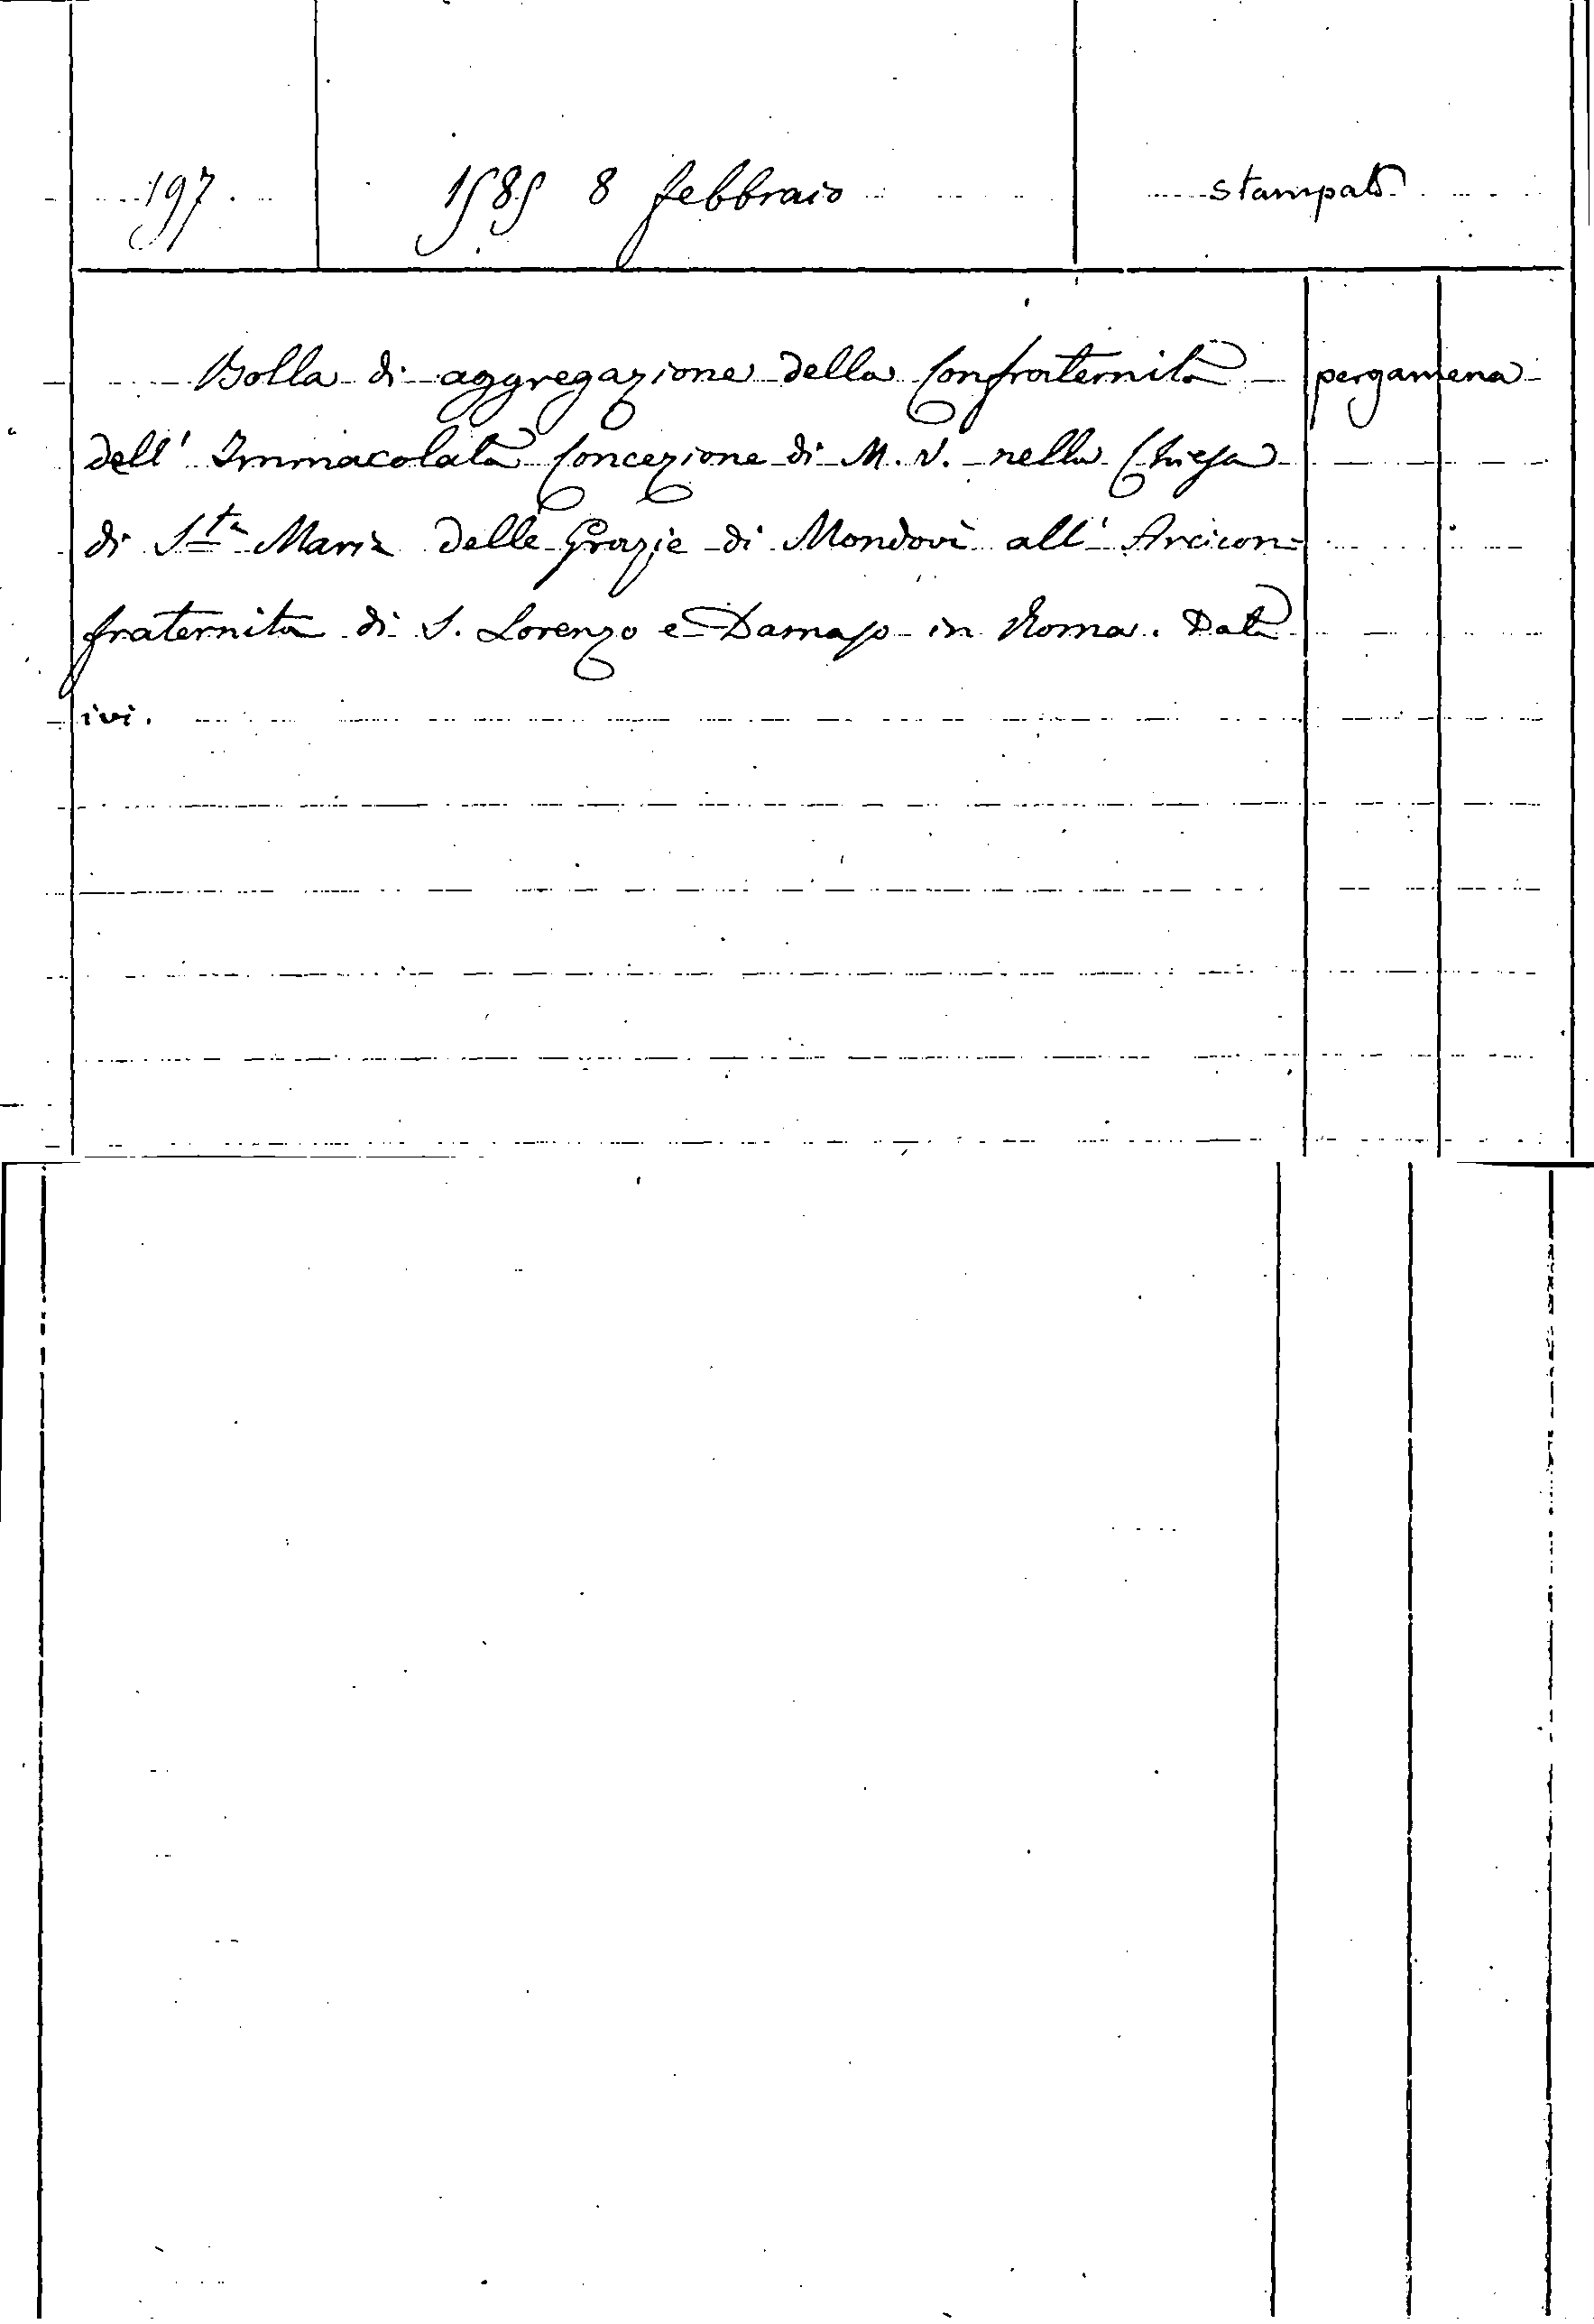 197. 1585 8 febbraio stampato
Bolla di aggregazione della Confraternita pergamena
dell' Immacolata Concezione di M. V. nella Chiesa
di S.ta Maria delle Grazie di Mondovì all' Arcicon=
fraternita di S. Lorenzo e Damaso in Roma. Data
ivi.